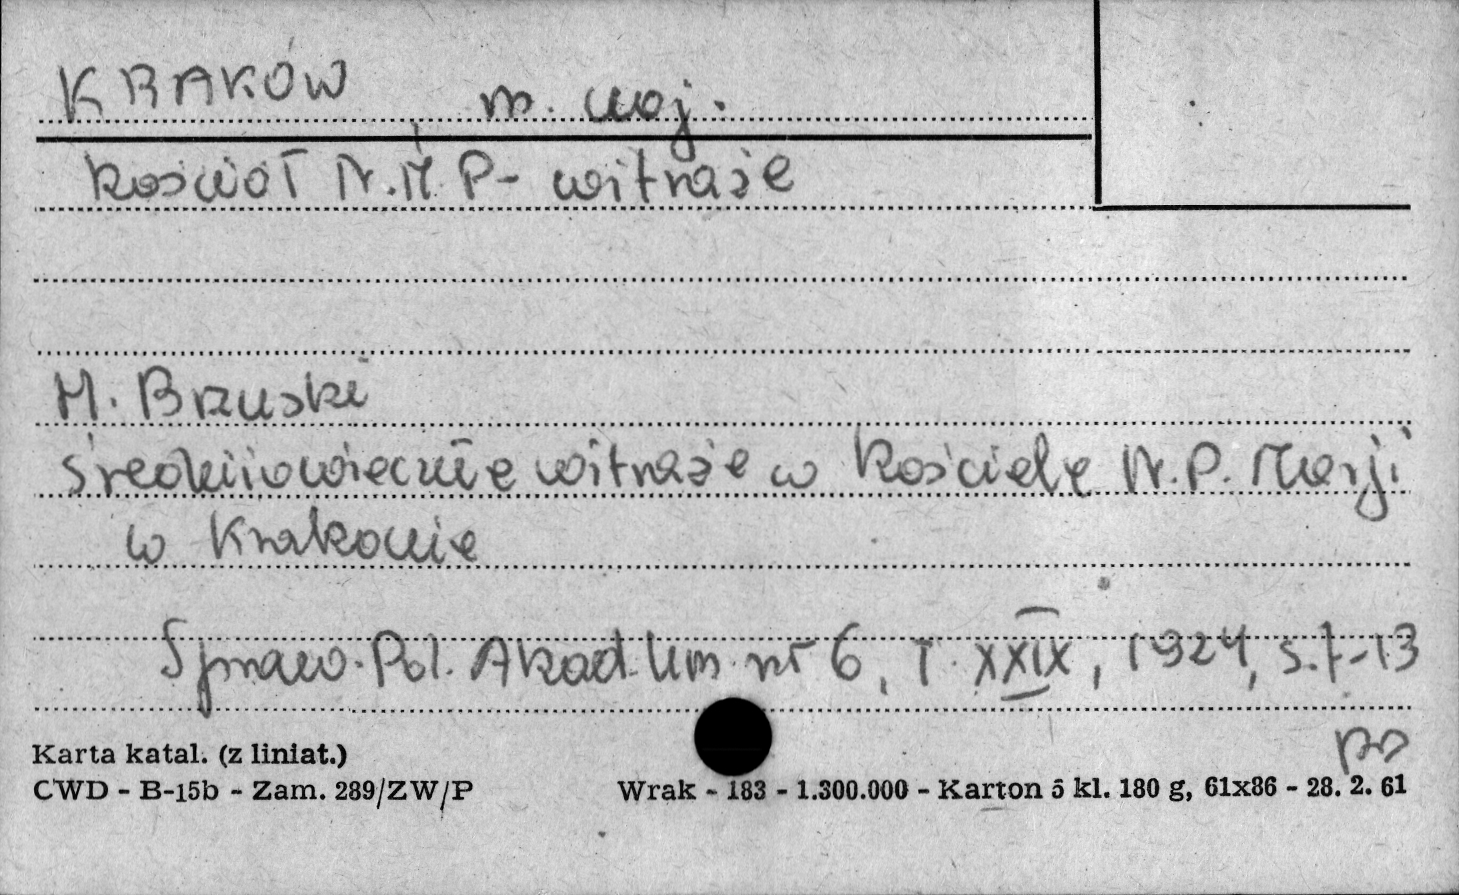 KRAKÓW m. woj.
Kościół N.M.P- witraże
H. Bruski
średniowieczne witraże w Kościele N.P. Marji
w Krakowie
Spraw. Pol. Akad. Um. nr 6, T. XXIX, 1924, s. 7-13
Karta katal. (z liniat.)
CWD - B-15b - Zam. 289/ZW/P
Wrak - 183 - 1.300.000 - Karton 5 kl. 180 g, 61x86 - 28. 2. 61